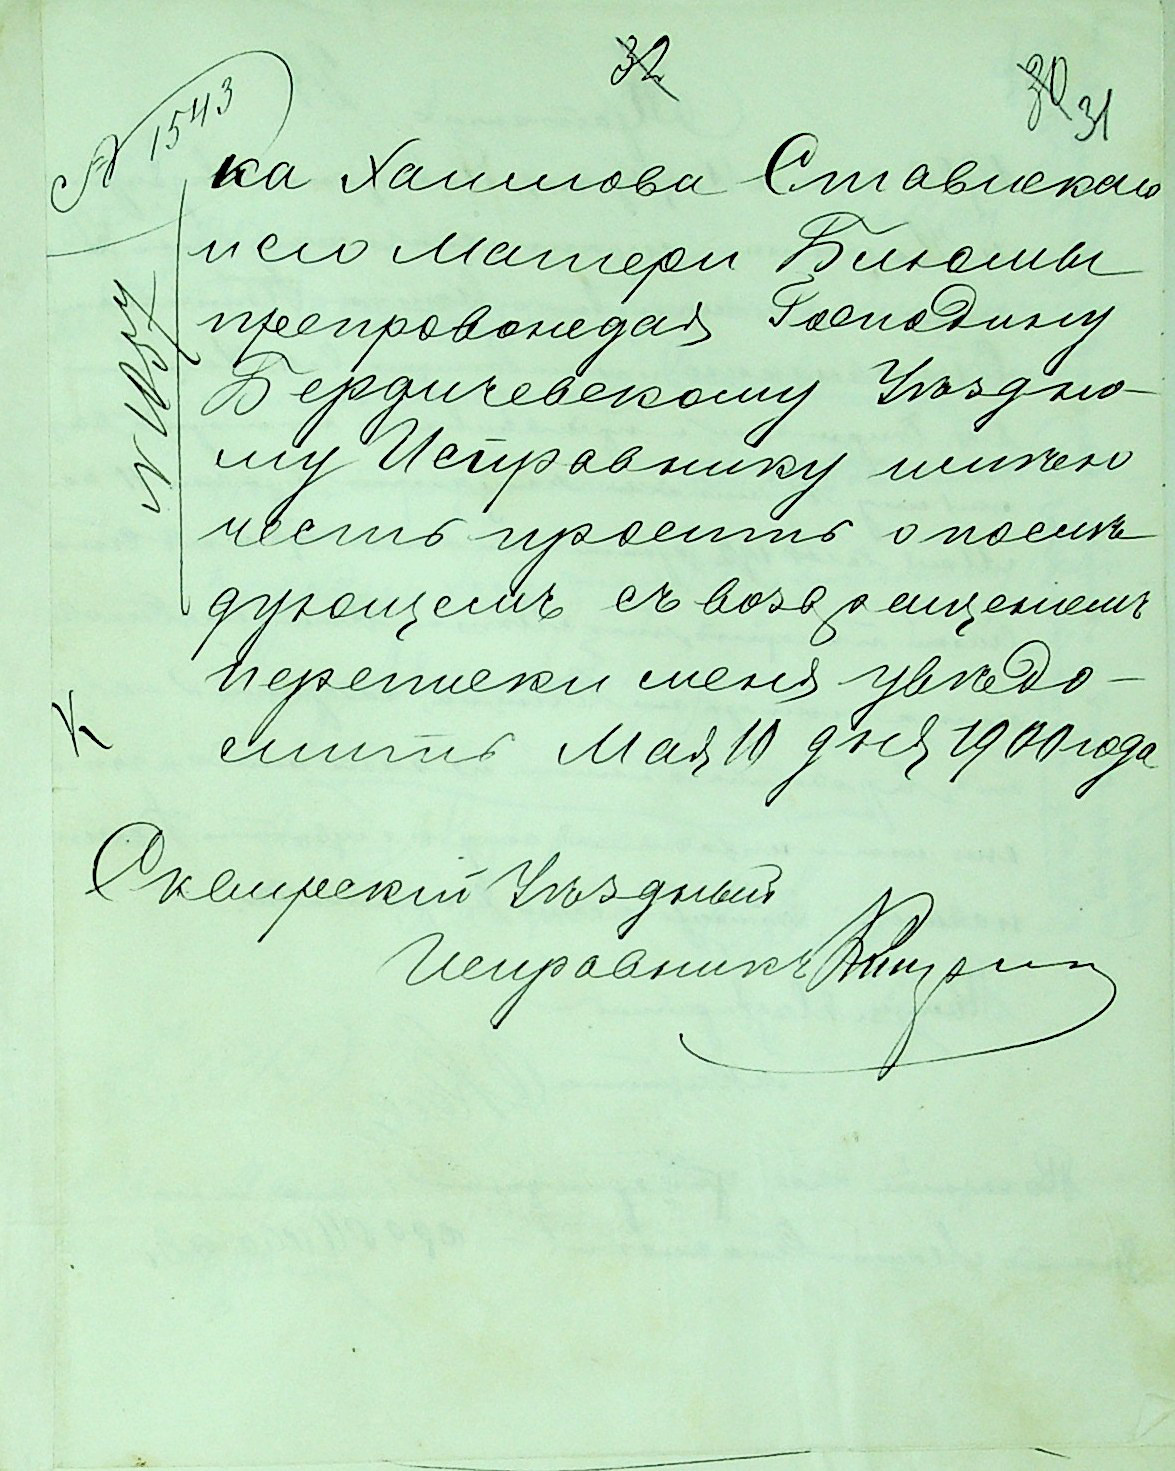 32
30 31
№ 1543
ка Хаимова Ставискаго
и его матери Блюмы
препровождая Господину
Бердичевскому Уѣздно-
му Исправнику имѣю
честь просить о послѣ
дующемъ съ возвращеніемъ
переписки меня увѣдо-
мить Мая 10 дня 1900 года
К
Сквирскій Уѣздный
Исправникъ